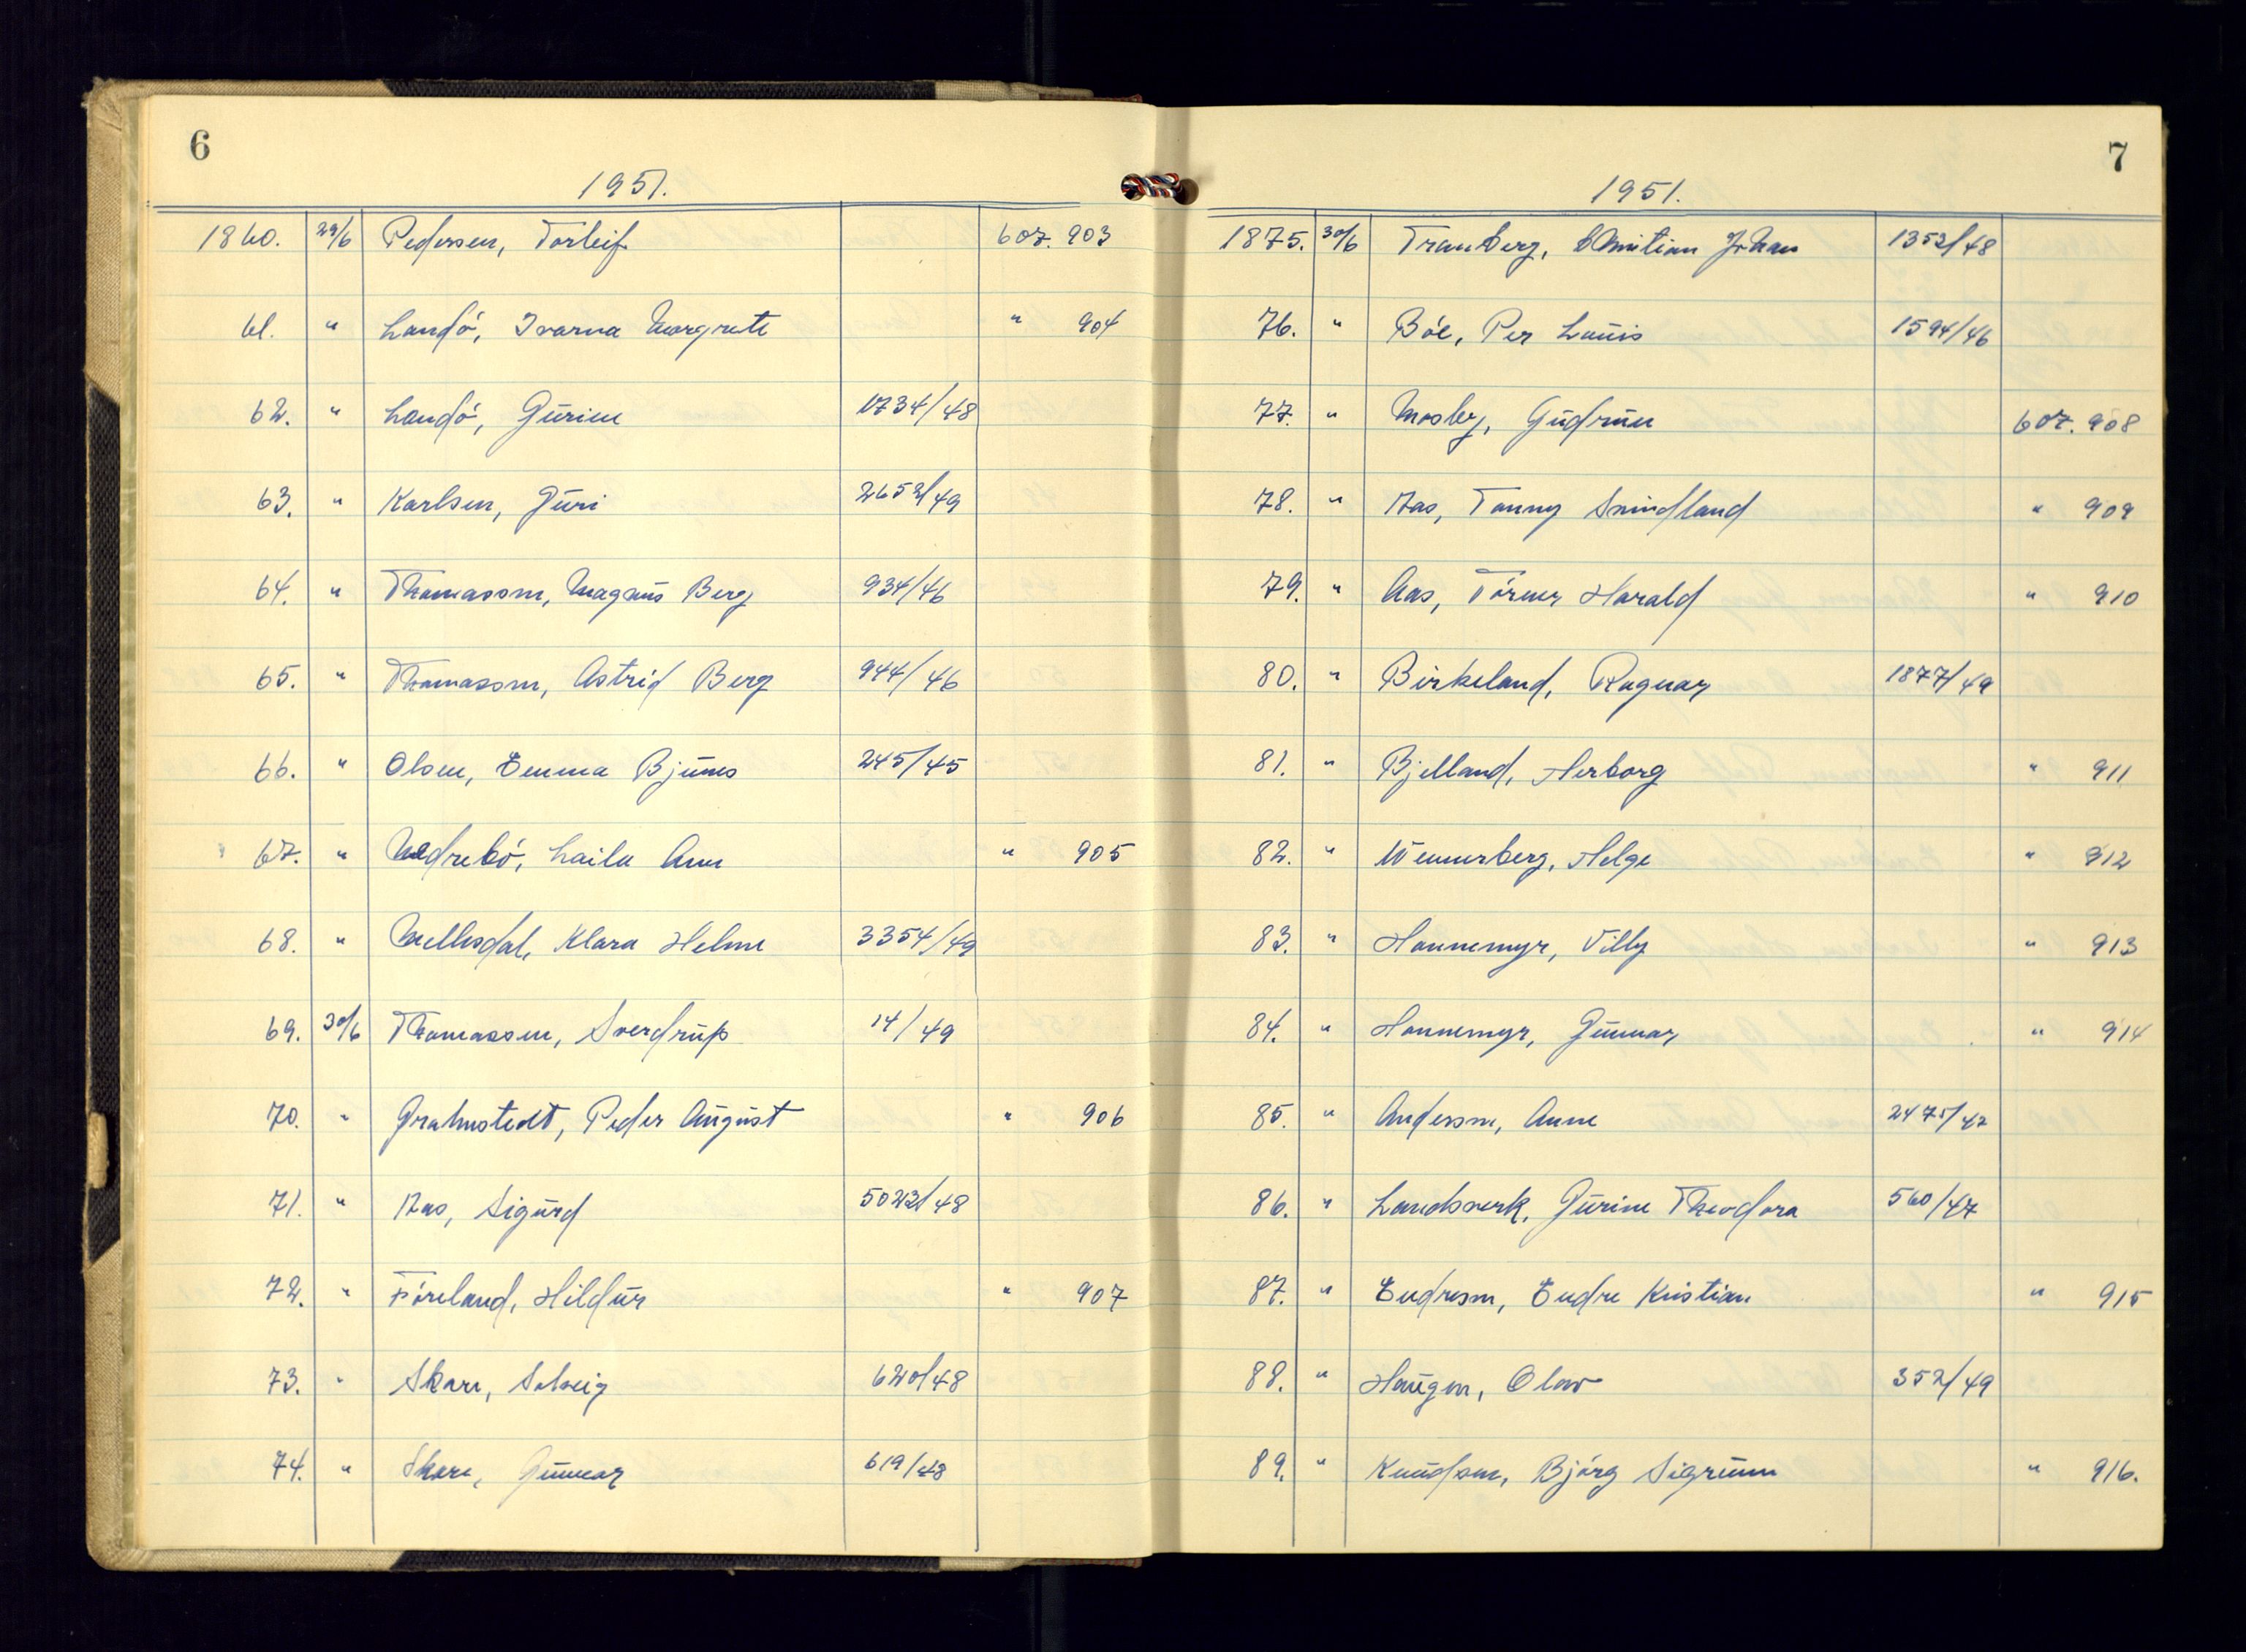 6
1951.
1860. 29/6 Pedersen, Torleif 607.903
61. " Landö, Ivarna Margrete " 904
62. " Landö, Gurine 1734/48
63. " Karlsen, Guri 2652/49
64. " Thomassen, Magnus Berg 934/46
65. " Thomassen, Astrid Berg 944/46
66. " Olsen, Emma Bjunes 245/45
67. " Nedrebö, Laila Ann " 905
68. " Mellesdal, Klara Helene 3354/49
69. 30/6 Thomassen, Sverdrup 14/49
70. " Grahnstedt, Peder August " 906
71. " Aas, Sigurd 5022/48
72. " Föreland, Hildur " 907
73. " Skare, Solveig 620/48
74. " Skare, Gunnar 619/48
7
1951.
1875. 30/6 Tranberg, Christian Johan 1352/48
76. " Böe, Per Louis 1594/46
77. " Mosby, Gudrun 607.908
78. " Aas, Fanny Smidland " 909
79. " Aas, Törner Harald " 910
80. " Birkeland, Ragnar 1877/49
81. " Bjelland, Herborg " 911
82. " Wennerberg, Helge " 912
83. " Hannemyr, Villy " 913
84. " Hannemyr, Gunnar " 914
85. " Andersen, Anne 2475/42
86. " Landsverk, Gurine Theodora 560/47
87. " Endresen, Endre Kristian " 915
88. " Haugen, Olav 352/49
89. " Knudsen, Björg Sigrunn " 916.